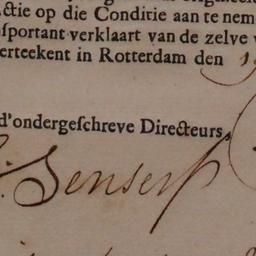 ctie op die Conditie aan te nem
ſportant verklaart van de zelve
erteekent in Rotterdam den
d'ondergeſchreve Directeurs,